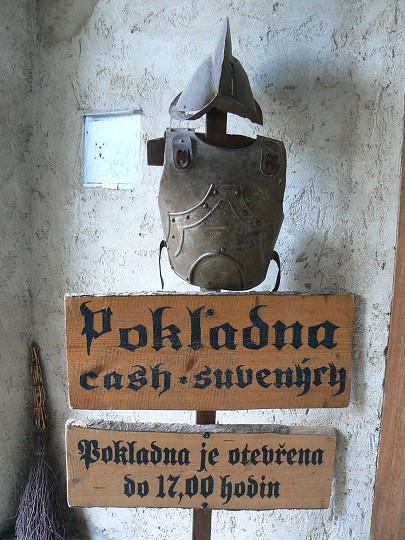 Pokladna
cash · suvenýry
Pokladna je otevřena
do 17,00 hodin